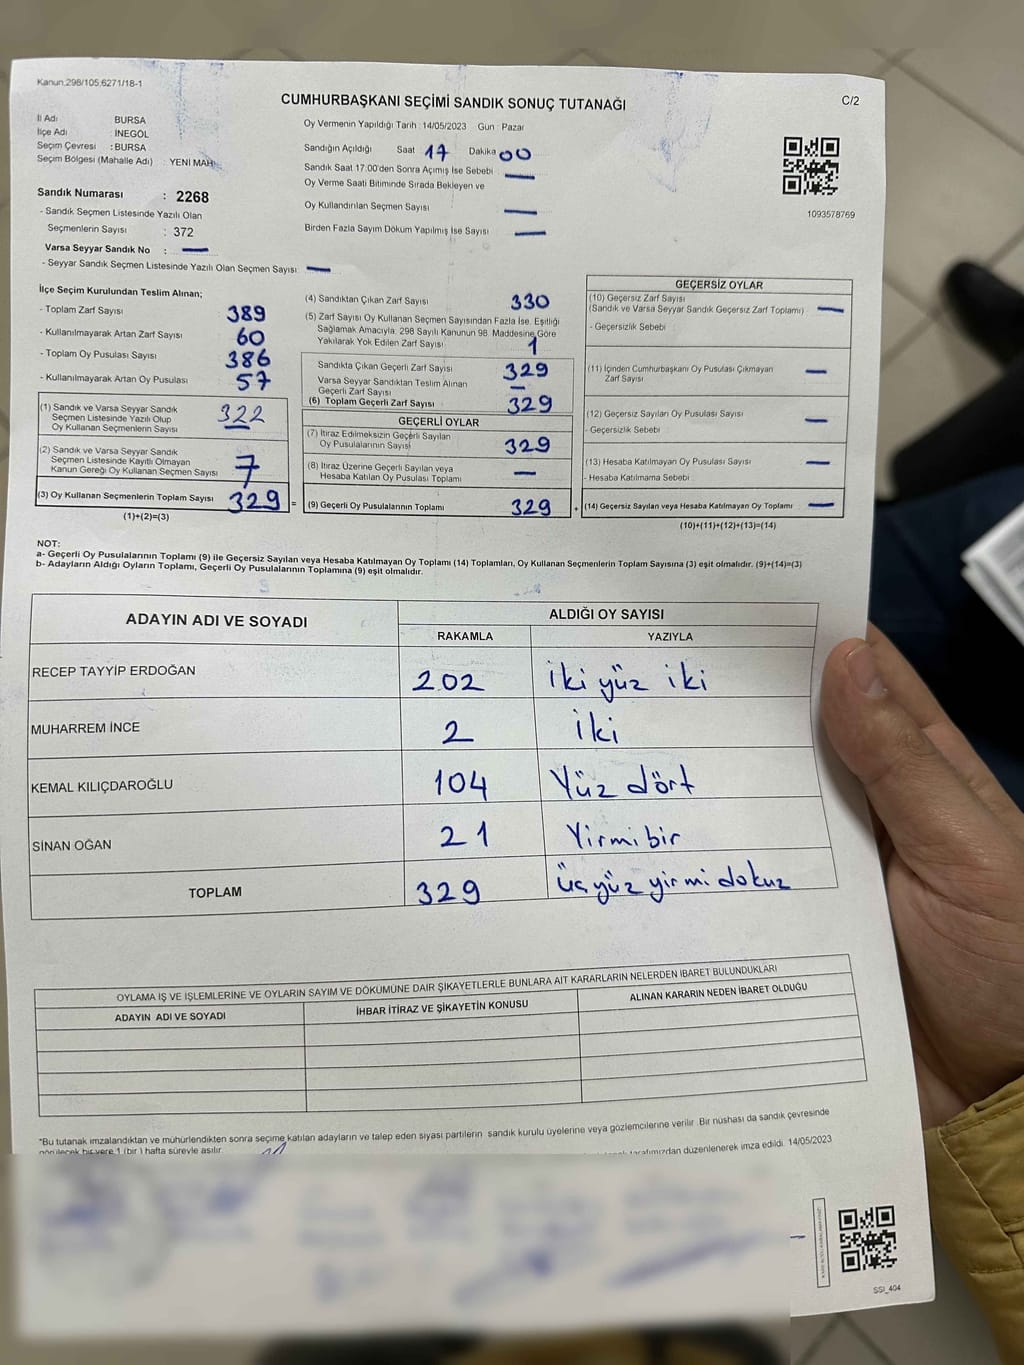 Kanun.298/105,6271/18-1
C/2
CUMHURBAŞKANI SEÇİMİ SANDIK SONUÇ TUTANAĞI
İl Adı BURSA
İlçe Adı İNEGÖL
Seçim Çevresi : BURSA
Seçim Bölgesi (Mahalle Adı) YENİ MAH
Sandık Numarası : 2268
- Sandık Seçmen Listesinde Yazılı Olan
Seçmenlerin Sayısı : 372
Varsa Seyyar Sandık No : —
- Seyyar Sandık Seçmen Listesinde Yazılı Olan Seçmen Sayısı —
Oy Vermenin Yapıldığı Tarih : 14/05/2023 Gün : Pazar
Sandığın Açıldığı Saat 17 Dakika 00
Sandık Saat 17:00'den Sonra Açımış İse Sebebi —
Oy Verme Saati Bitiminde Sırada Bekleyen ve
Oy Kullandırılan Seçmen Sayısı —
Birden Fazla Sayım Döküm Yapılmış İse Sayısı —
1093578769
İlçe Seçim Kurulundan Teslim Alınan;
- Toplam Zarf Sayısı 389
- Kullanılmayarak Artan Zarf Sayısı 60
- Toplam Oy Pusulası Sayısı 386
- Kullanılmayarak Artan Oy Pusulası 57
(1) Sandık ve Varsa Seyyar Sandık
Seçmen Listesinde Yazılı Olup
Oy Kullanan Seçmenlerin Sayısı 322
(2) Sandık ve Varsa Seyyar Sandık
Seçmen Listesinde Kayıtlı Olmayan
Kanun Gereği Oy Kullanan Seçmen Sayısı 7
(3) Oy Kullanan Seçmenlerin Toplam Sayısı 329 =
(1)+(2)=(3)
(4) Sandıktan Çıkan Zarf Sayısı 330
(5) Zarf Sayısı Oy Kullanan Seçmen Sayısından Fazla İse, Eşitliği
Sağlamak Amacıyla, 298 Sayılı Kanunun 98. Maddesine Göre
Yakılarak Yok Edilen Zarf Sayısı 1
Sandıkta Çıkan Geçerli Zarf Sayısı 329
Varsa Seyyar Sandıktan Teslim Alınan
Geçerli Zarf Sayısı —
(6) Toplam Geçerli Zarf Sayısı 329
GEÇERLİ OYLAR
(7) İtiraz Edilmeksizin Geçerli Sayılan
Oy Pusulalarının Sayısı 329
(8) İtiraz Üzerine Geçerli Sayılan veya
Hesaba Katılan Oy Pusulası Toplamı —
(9) Geçerli Oy Pusulalarının Toplamı 329 +
GEÇERSİZ OYLAR
(10) Geçersiz Zarf Sayısı
(Sandık ve Varsa Seyyar Sandık Geçersiz Zarf Toplamı) —
- Geçersizlik Sebebi
(11) İçinden Cumhurbaşkanı Oy Pusulası Çıkmayan
Zarf Sayısı —
(12) Geçersiz Sayılan Oy Pusulası Sayısı —
- Geçersizlik Sebebi
(13) Hesaba Katılmayan Oy Pusulası Sayısı —
- Hesaba Katılmama Sebebi
(14) Geçersiz Sayılan veya Hesaba Katılmayan Oy Toplamı —
(10)+(11)+(12)+(13)=(14)
NOT:
a- Geçerli Oy Pusulalarının Toplamı (9) ile Geçersiz Sayılan veya Hesaba Katılmayan Oy Toplamı (14) Toplamları, Oy Kullanan Seçmenlerin Toplam Sayısına (3) eşit olmalıdır. (9)+(14)=(3)
b- Adayların Aldığı Oyların Toplamı, Geçerli Oy Pusulalarının Toplamına (9) eşit olmalıdır.
ADAYIN ADI VE SOYADI ALDIĞI OY SAYISI
RAKAMLA YAZIYLA
RECEP TAYYİP ERDOĞAN 202 iki yüz iki
MUHARREM İNCE 2 iki
KEMAL KILIÇDAROĞLU 104 Yüz dört
SİNAN OĞAN 21 Yirmibir
TOPLAM 329 üç yüz yirmi dokuz
OYLAMA İŞ VE İŞLEMLERİNE VE OYLARIN SAYIM VE DÖKÜMÜNE DAİR ŞİKAYETLERLE BUNLARA AİT KARARLARIN NELERDEN İBARET BULUNDUKLARI
ADAYIN ADI VE SOYADI İHBAR İTİRAZ VE ŞİKAYETİN KONUSU ALINAN KARARIN NEDEN İBARET OLDUĞU
*Bu tutanak imzalandıktan ve mühürlendikten sonra seçime katılan adayların ve talep eden siyasi partilerin sandık kurulu üyelerine veya gözlemcilerine verilir. Bir nüshası da sandık çevresinde
görülecek bir yere 1 (bir ) hafta süreyle asılır. tarafımızdan düzenlenerek imza edildi. 14/05/2023
SSI_404